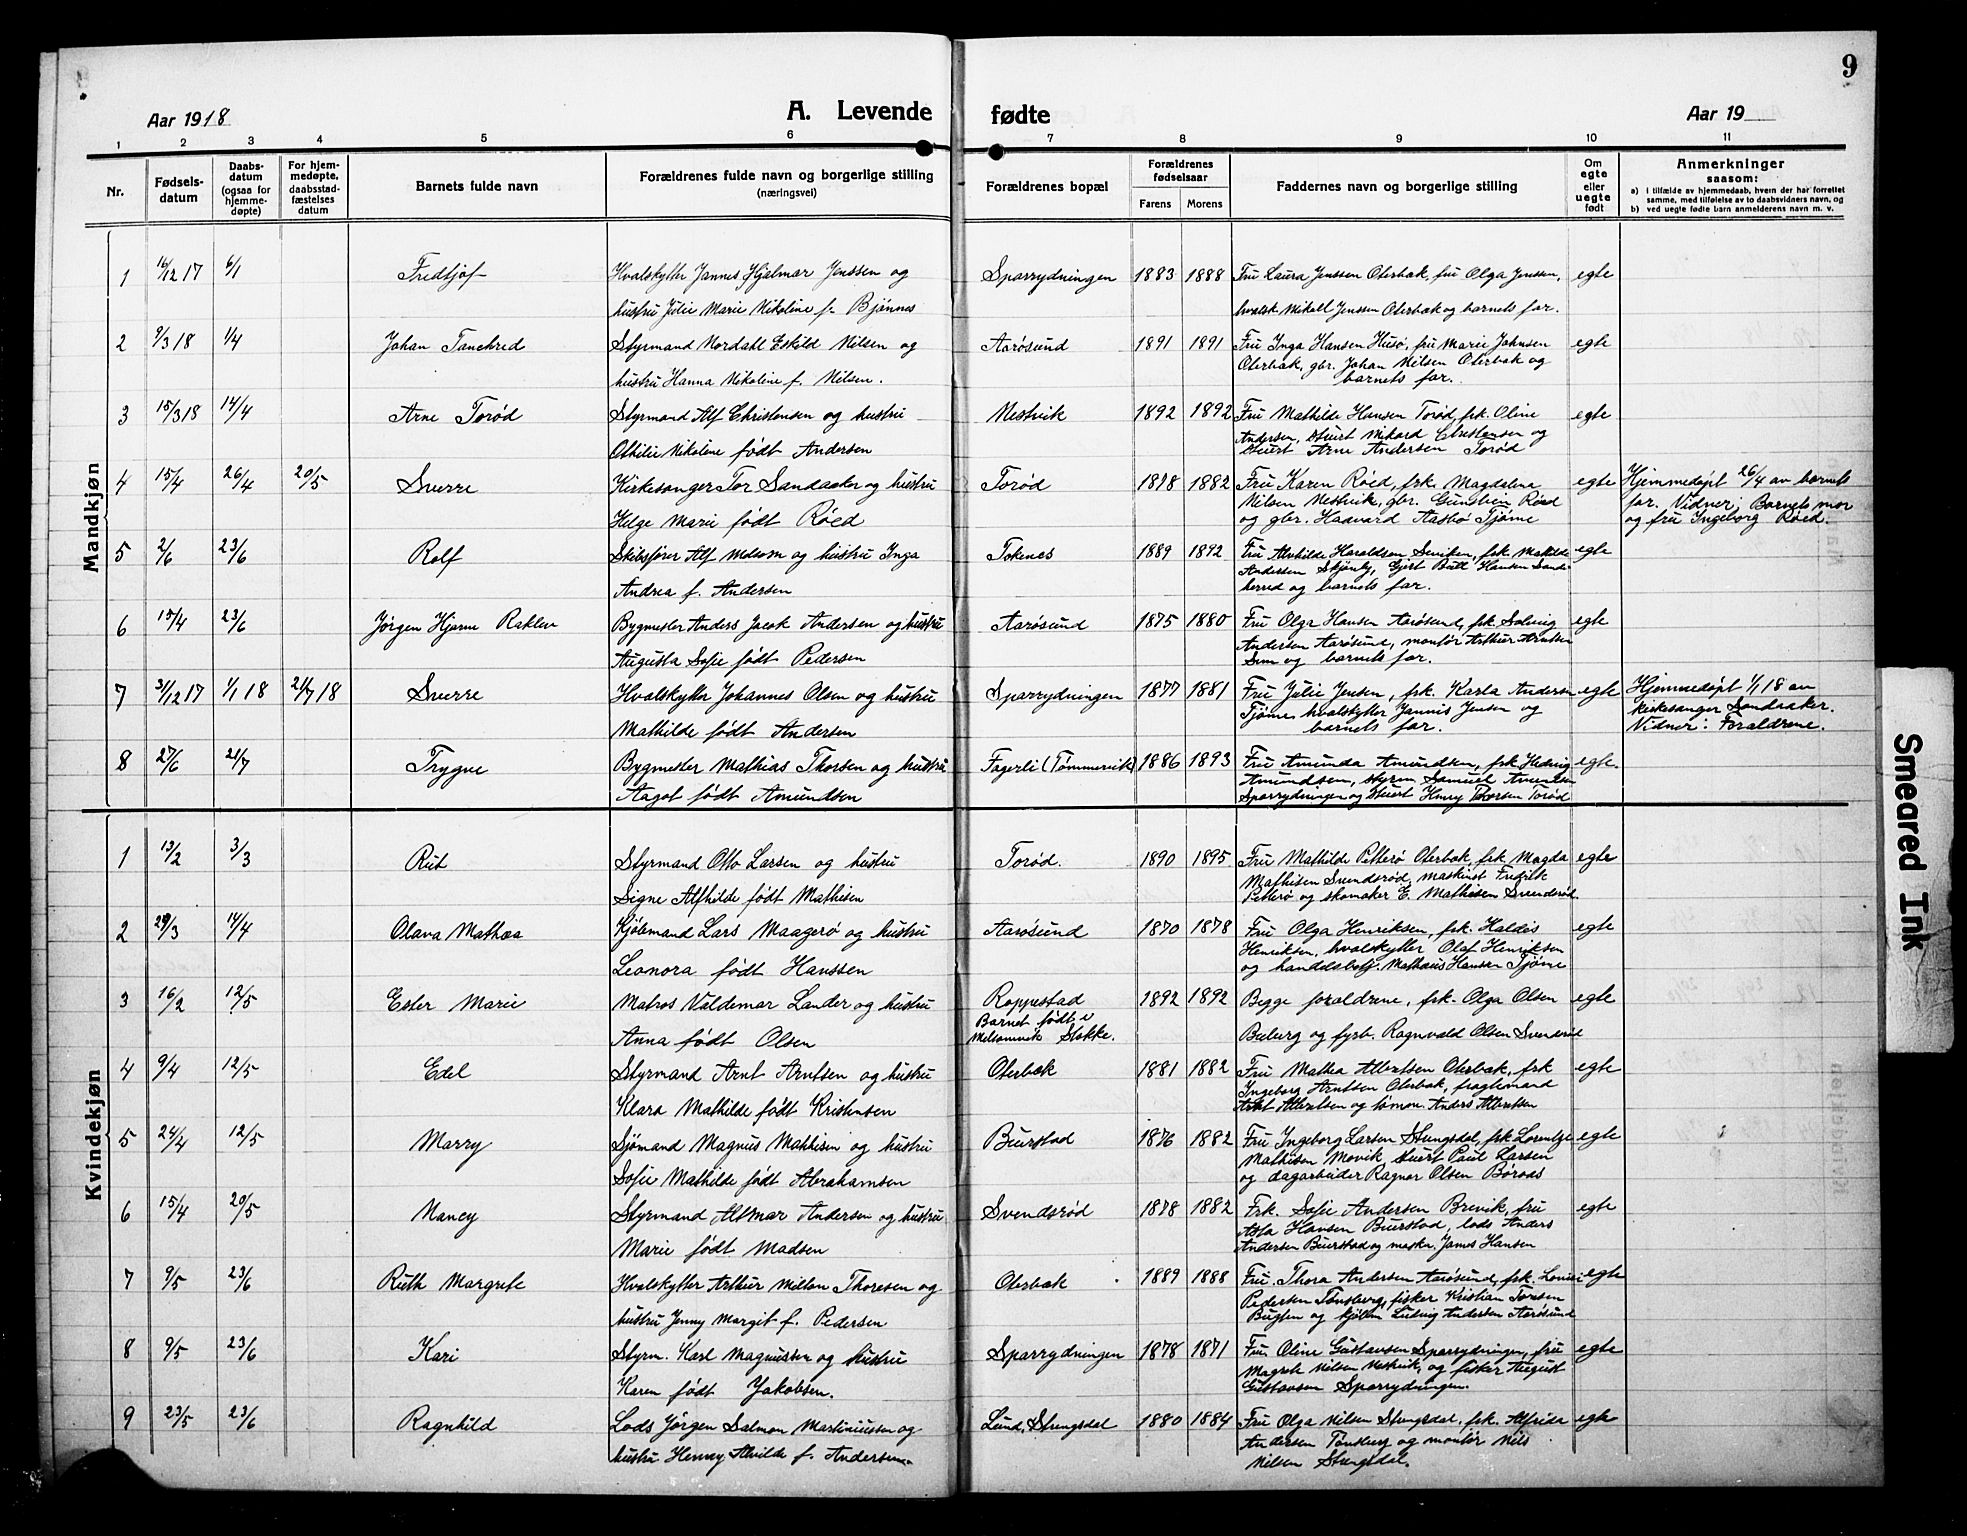 9
Aar 1918
A. Levende
fødte
Aar 19
1 2 3 4 5 6 7 8 9 10 11
Nr.
Fødsels-
datum
Daabs-
datum
(ogsaa for
hjemme-
døpte)
For hjem-
medøpte,
daabsstad-
fæstelses
datum
Barnets fulde navn
Forældrenes fulde navn og borgerlige stilling
(næringsvei)
Forældrenes bopæl
Forældrenes
fødselsaar
Farens
Morens
Faddernes navn og borgerlige stilling
Om
egte
eller
uegte
født
Anmerkninger
saasom:
a) i tilfælde av hjemmedaab, hvem der har forrettet
samme, med tilføielse av to daabsvidners navn, og
b) ved uegte fødte barn anmelderens navn m. v.
Mandkjøn
1 16/12 17 6/1 Fredtjof Hvalskytter Jannes Hjalmar Jenssen og Sparrydningen 1883 1888 Fru Laura Jenssen Oterbæk, fru Olga Jenssen, egte
hustru Julie Marie Nikoline f. Bjønnes hvalsk Mikall Jenssen Oterbæk og barnets far.
2 9/3 18 1/4 Johan Tanchred Styrmand Nordahl Eskild Nilsen og Aarøsund 1891 1891 Fru Inga Hansen Husø, fru Marie Johnsen egte
hustru Hanna Nikoline f. Nilsen. Oterbæk, gbr. Johan Nilsen Oterbæk og
barnets far.
3 15/3 18 14/4 Arne Torød Styrmand Alf Christensen og hustru Nestvik 1892 1892 Fru Mathilde Hansen Torød, frk. Oline egte
Othilie Nikoline født Andersen Andersen, stuert Mikard Christensen og
stuert Arne Andersen Torød
4 15/4 26/4 20/5 Sverre Kirkesanger Tor Sandaaker og hustru Torød 1878 1882 Fru Karen Røed, frk. Magdalena egte Hjemmedøpt 26/4 av barnets
Helge Marie født Røed Nilsen Nestvik, gbr. Gunstein Røed far. Vidner: Barnets mor
og gbr. Haavard Aasbø Tjøme og fru Ingeborg Røed.
5 2/6 23/6 Rolf Skibsfører Alf Melsom og hustru Inga Tokenes 1889 1892 Fru Alvhilde Haraldsen Seviken, frk. Mathilde egte
Andrea f. Andersen Andersen Skjønby, Gjert Bull Hansen Sande-
herred og barnets far.
6 15/4 23/6 Jørgen Hjarne Raklev Bygmester Anders Jacok Andersen og hustru Aarøsund 1875 1880 Fru Olga Hansen Aarøsund, frk. Solveig egte
Augusta Sofie født Pedersen Andersen Aarøsund, montør Arthur Arntsen
Sem og barnets far.
7 31/12 17 1/1 18 21/7 18 Sverre Hvalskytter Johannes Olsen og hustru Sparrydningen 1877 1881 Fru Julie Jensen, frk. Karla Andersen egte Hjemmedøpt 1/1 18 av
Mathilde født Andersen Tjøme, hvalskytter Jannis Jensen og kirkesanger Sandaaker.
barnets far. Vidner: Foraldrene.
8 27/6 21/7 Trygve Bygmester Mathias Thorsen og hustru Fagerli (Tømmervik) 1886 1893 Fru Amunda Amundsen, frk Hedvig egte.
Aagot født Amundsen Amundsen, styrm. Samuel Amundsen
Sparrydningen og stuert Henry Thorsen Torød
Kvindekjøn
1 13/2 3/3 Rut Styrmand Otto Larsen og hustru Torød. 1890 1895 Fru Mathilde Petterø Oterbæk, frk. Magda egte
Signe Alfhilde født Mathisen Mathisen Svendsrød, maskinist Fredrik
Petterø og skomaker E. Mathisen Svendsrød
2 29/3 14/4 Olava Mathæa Kjølemand Lars Maagerø og hustru Aarøsund 1870 1878 Fru Olga Henriksen, frk. Haldis egte
Leonora født Hanssen Henriksen, hvalskytter Olaf Henriksen
og handelsbetj. Mathæus Hansen Tjøme
3 16/2 12/5 Ester Marie Matros Valdemar Lander og hustru Roppestad 1892 1892 Begge foraldrene, frk. Olga Olsen egte
Barnet født i
Anna født Olsen Melsomvik Stokke. Buberg og fyrb. Ragnvald Olsen Svendsrød
4 9/4 12/5 Edel Styrmand Arnt Arntsen og hustru Oterbæk 1881 1882 Fru Mathea Albertsen Oterbæk, frk egte
Klara Mathilde født Kristensen Ingeborg Arntsen Oterbæk, fragtemand
Arnt Albertsen og tømm. Anders Albertsen
5 24/4 12/5 Marry Sjømand Magnus Mathisen og hustru Buerstad 1876 1882 Fru Ingeborg Larsen Stengsdal, frk Lorentze egte
Sofie Mathilde født Abrahamsen Mathisen Movik stuert Paul Larsen
og dagarbeider Ragnar Olsen Børaas
6 15/4 20/5 Nancy Styrmand Altmar Andersen og hustru Svendsrød 1878 1882 Frk. Sofie Andersen Brevik, fru egte
Marie født Madsen Asta Hansen Buerstad, lods Anders
Andersen Buerstad og mask. James Hansen
7 9/5 23/6 Ruth Margrete Hvalskytter Arthur Milton Thoresen og Oterbæk 1889 1888 Fru. Thora Andersen Aarøsund, frk. Louise egte
hustru Jenny Margit f. Pedersen Pedersen Tønsberg, fisker Kristian Tonsen
Bugten og kjølm Ludvig Andersen Aarøsund
8 9/5 23/6 Kari Styrm. Karl Magnussen og hustru Sparrydningen 1878 1871 Fru Oline Gustavsen Sparrydningen, fru egte
Karen født Jakobsen. Magrete Nilsen Nestvik, og fisker August
Gustavsen Sparrydningen.
9 23/5 23/6 Ragnhild Lods Jørgen Salmon Martiniussen og Lund, Stengsdal 1880 1884 Fru Olga Nilsen Stengsdal, frk. Alfrida egte
hustru Henny Alvilde f. Andersen. Andersen Tønsberg og montør Nils
Nilsen Stengsdal.
Smeared Ink